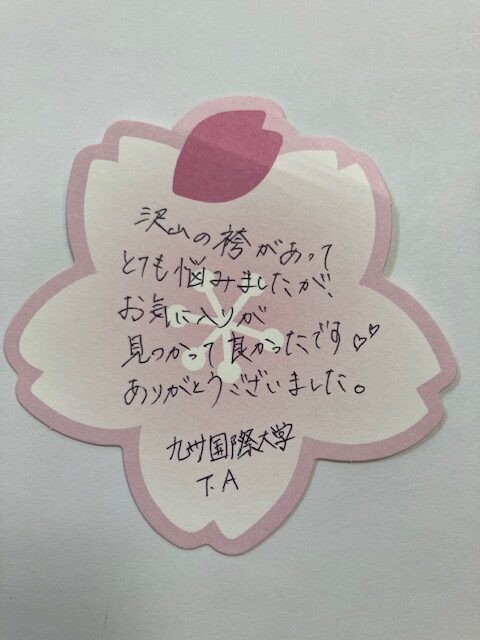 沢山の袴があって
とても悩みましたが、
お気に入りが
見つかって良かったです♡♡
ありがとうございました。
九州国際大学
T.A